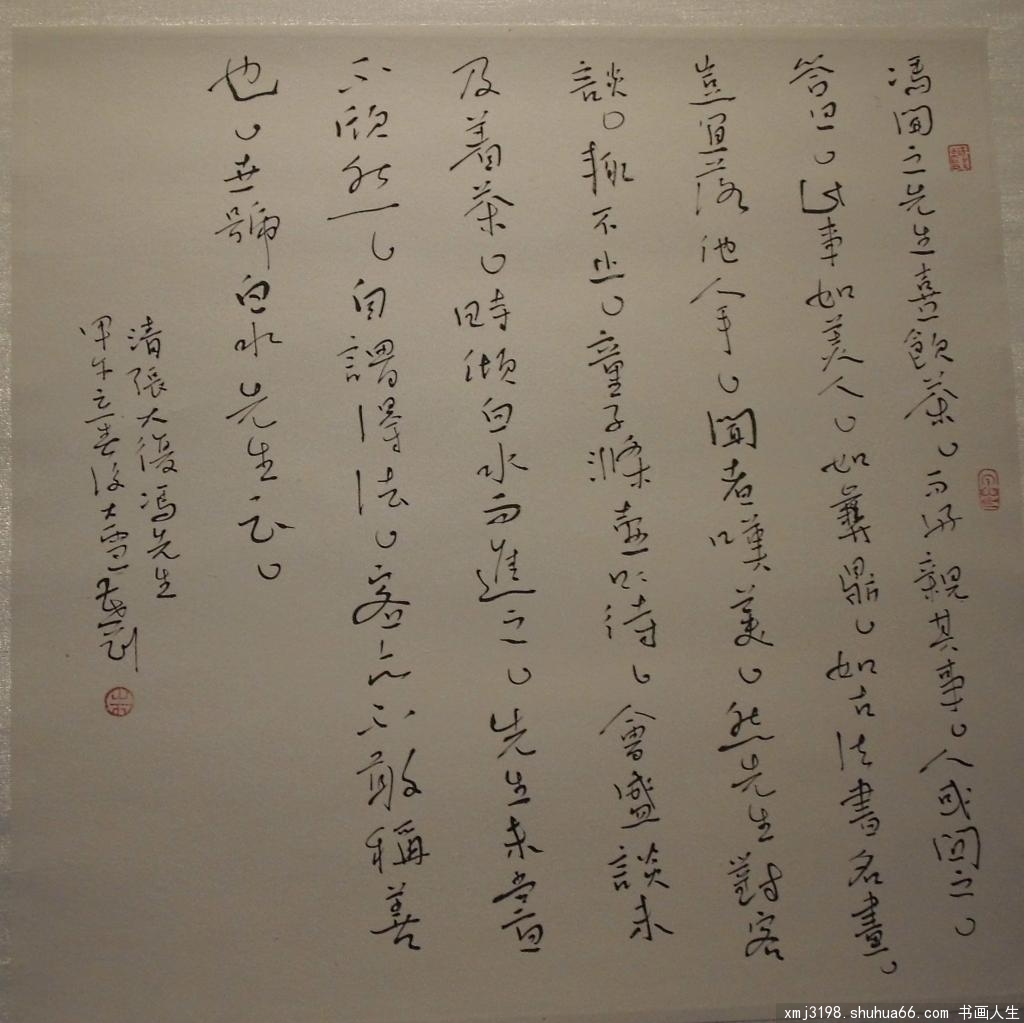 馮開之先生喜飲茶。而好親其事。人或問之。
答曰。此事如美人。如彝鼎。如古法書名畫。
豈宜落他人手。聞者嘆美。然先生對客
談。輒不止。童子滌壺以待。會盛談未
及著茶。時傾白水而進之。先生未嘗
不欣然。自謂得法。客亦不敢稱善
也。世號白水先生云。
清張大復馮先生
甲午立春後大雪
xmj3198.shuhua66.com 书画人生